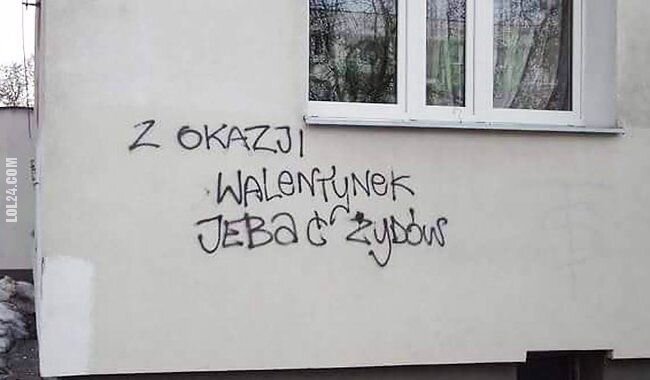 Z OKAZJI
WALENTYNEK
JEBAĆ ŻYDÓW
LOL24.COM